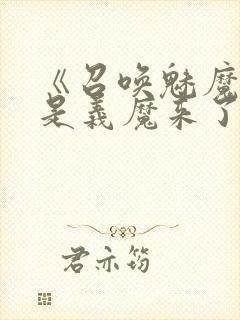 《召唤魅魔
是义魔来了
君亦筠